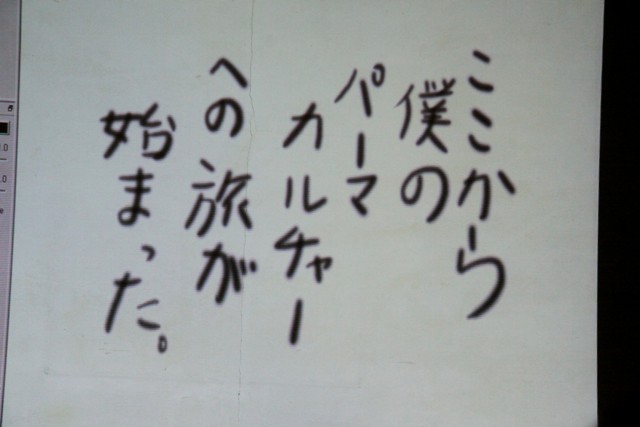 ここから
僕の
パーマ
カルチャー
への旅が
始まった。